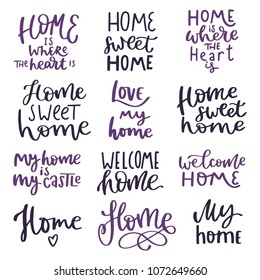 HOME
is
where
the heart is
HOME
sweet
HOME
HOME
is where
THE
Heart
is
Home
SWEET
home
Love
my
home
Home
sweet
home
My home
is
my castle
WELCOME
home
welcome
HOME
Home
Home
My
home
www.shutterstock.com · 1072649660